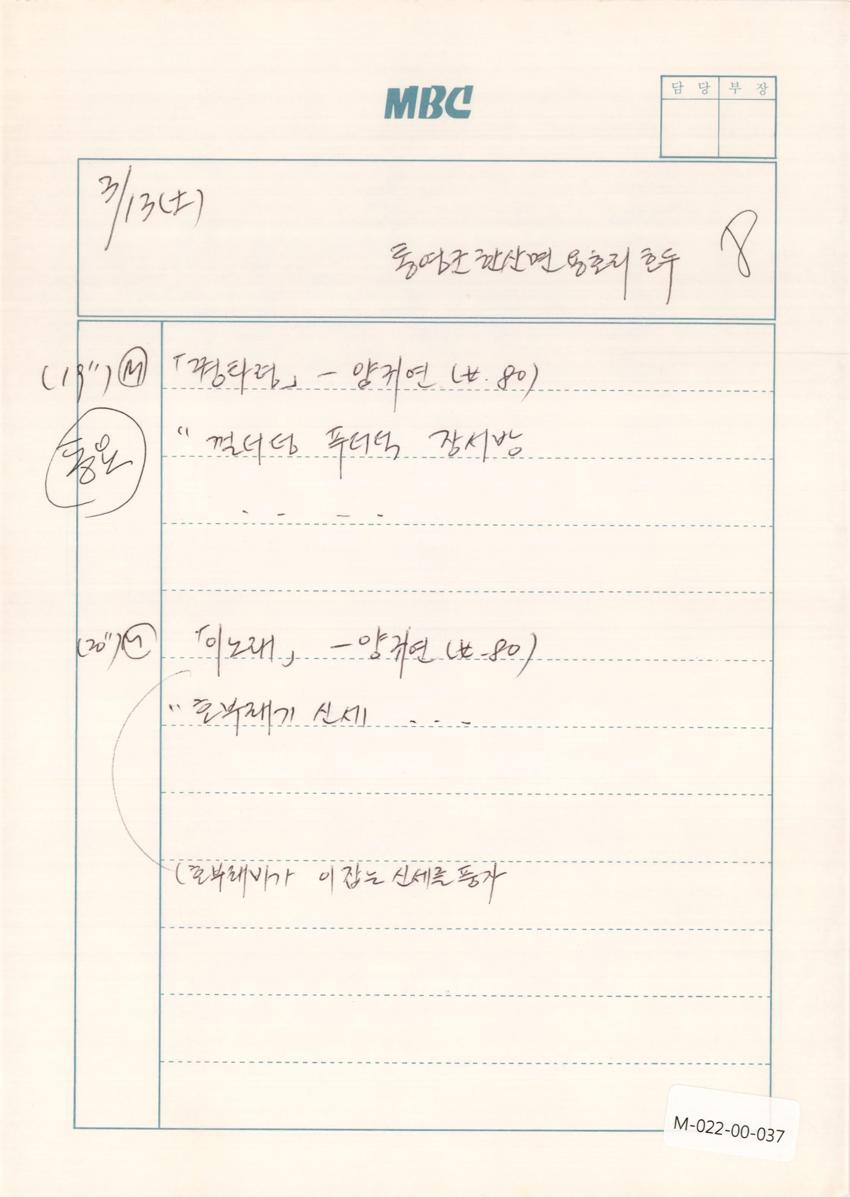 MBC
담 당 부 장
3/13(土)
통영군 한산면 용호리 호두 8
(19") M 「꿩타령」 - 양귀연 (女. 80)
"껄더덩 푸더덕 장서방
. . - .
(20") M 「이노래」 - 양귀연 (女. 80)
"호부래기 신세 . . .
(호부래비가 이 잡는 신세를 풍자
M-022-00-037